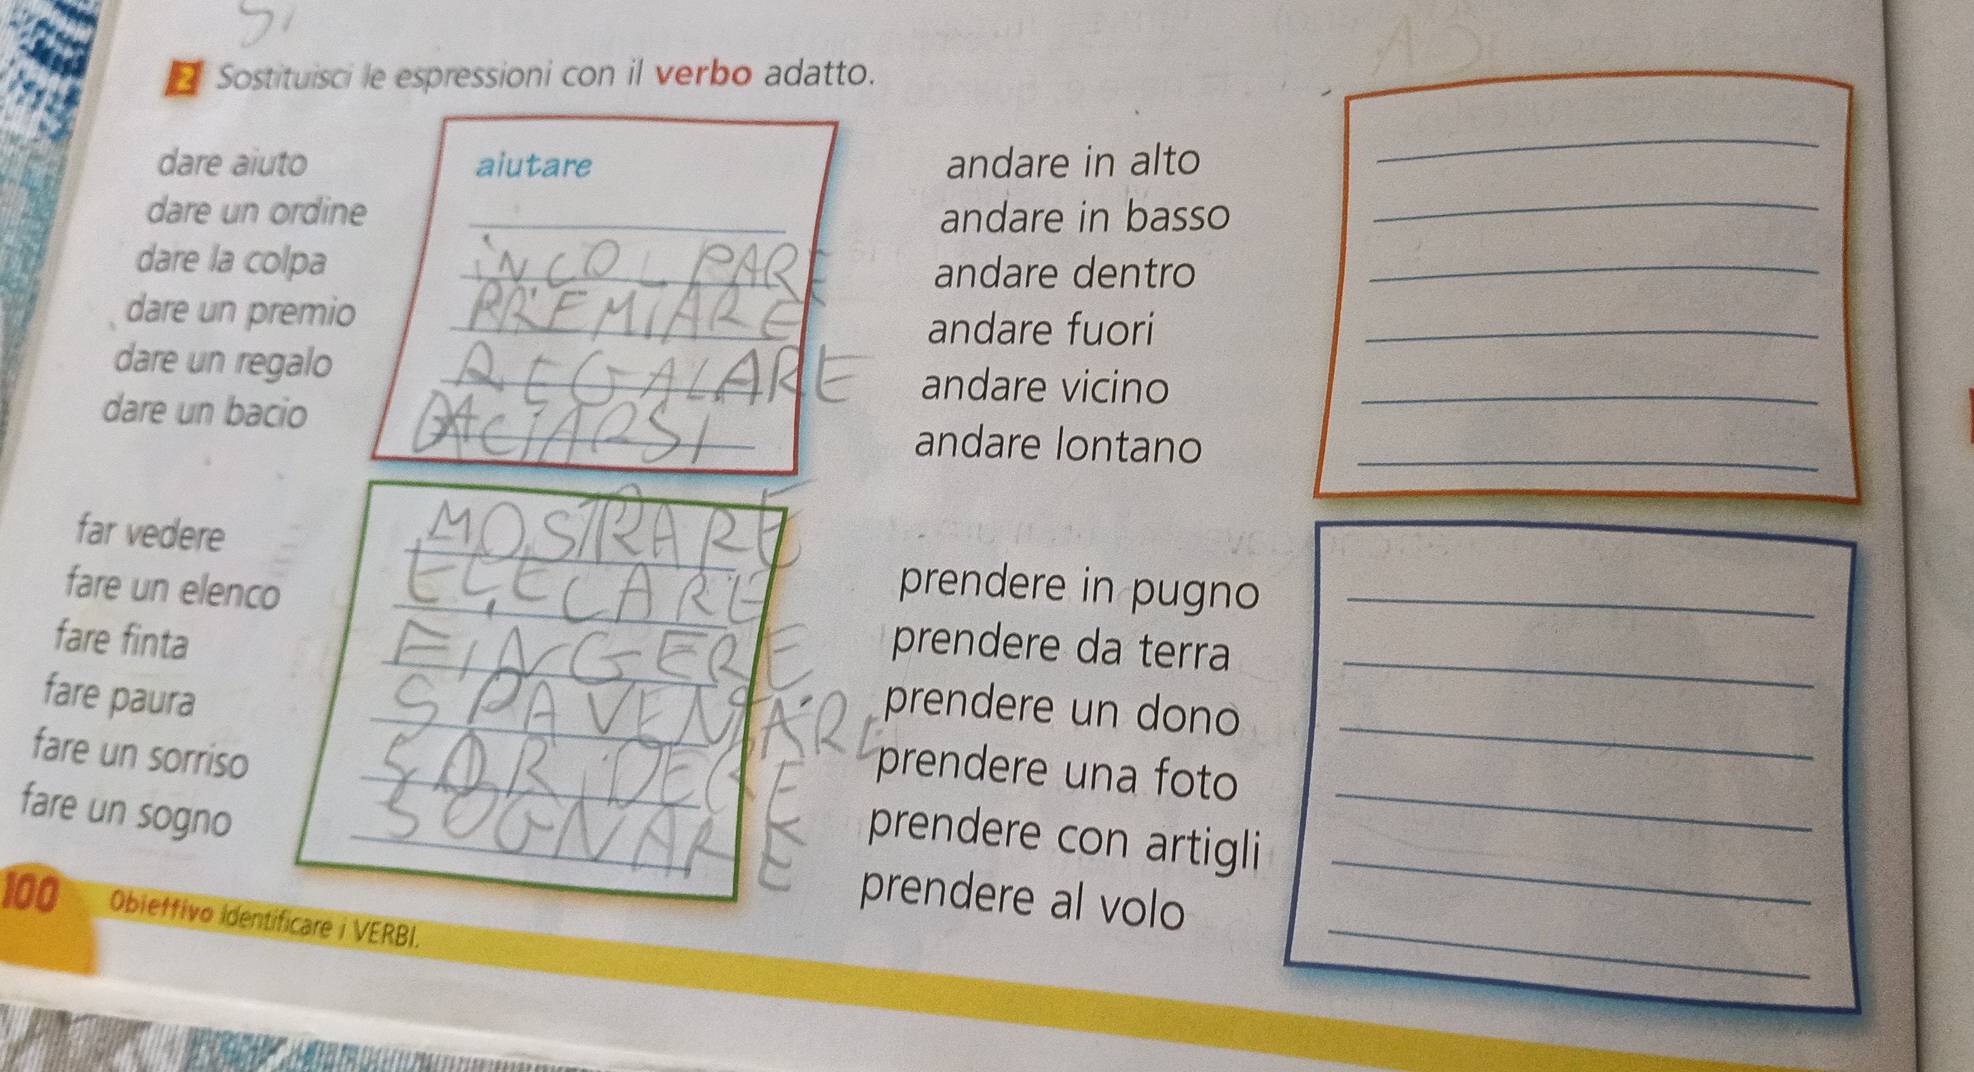 2 Sostituisci le espressioni con il verbo adatto.
dare aiuto aiutare
dare un ordine
dare la colpa INCOLPARE
dare un premio PREMIARE
dare un regalo REGALARE
dare un bacio BACIARSI
far vedere MOSTRARE
fare un elenco ELECARE
fare finta FINGERE
fare paura SPAVENTARE
fare un sorriso SORIDERE
fare un sogno SOGNARE
andare in alto
andare in basso
andare dentro
andare fuori
andare vicino
andare lontano
prendere in pugno
prendere da terra
prendere un dono
prendere una foto
prendere con artigli
prendere al volo
100 Obiettivo Identificare i VERBI.